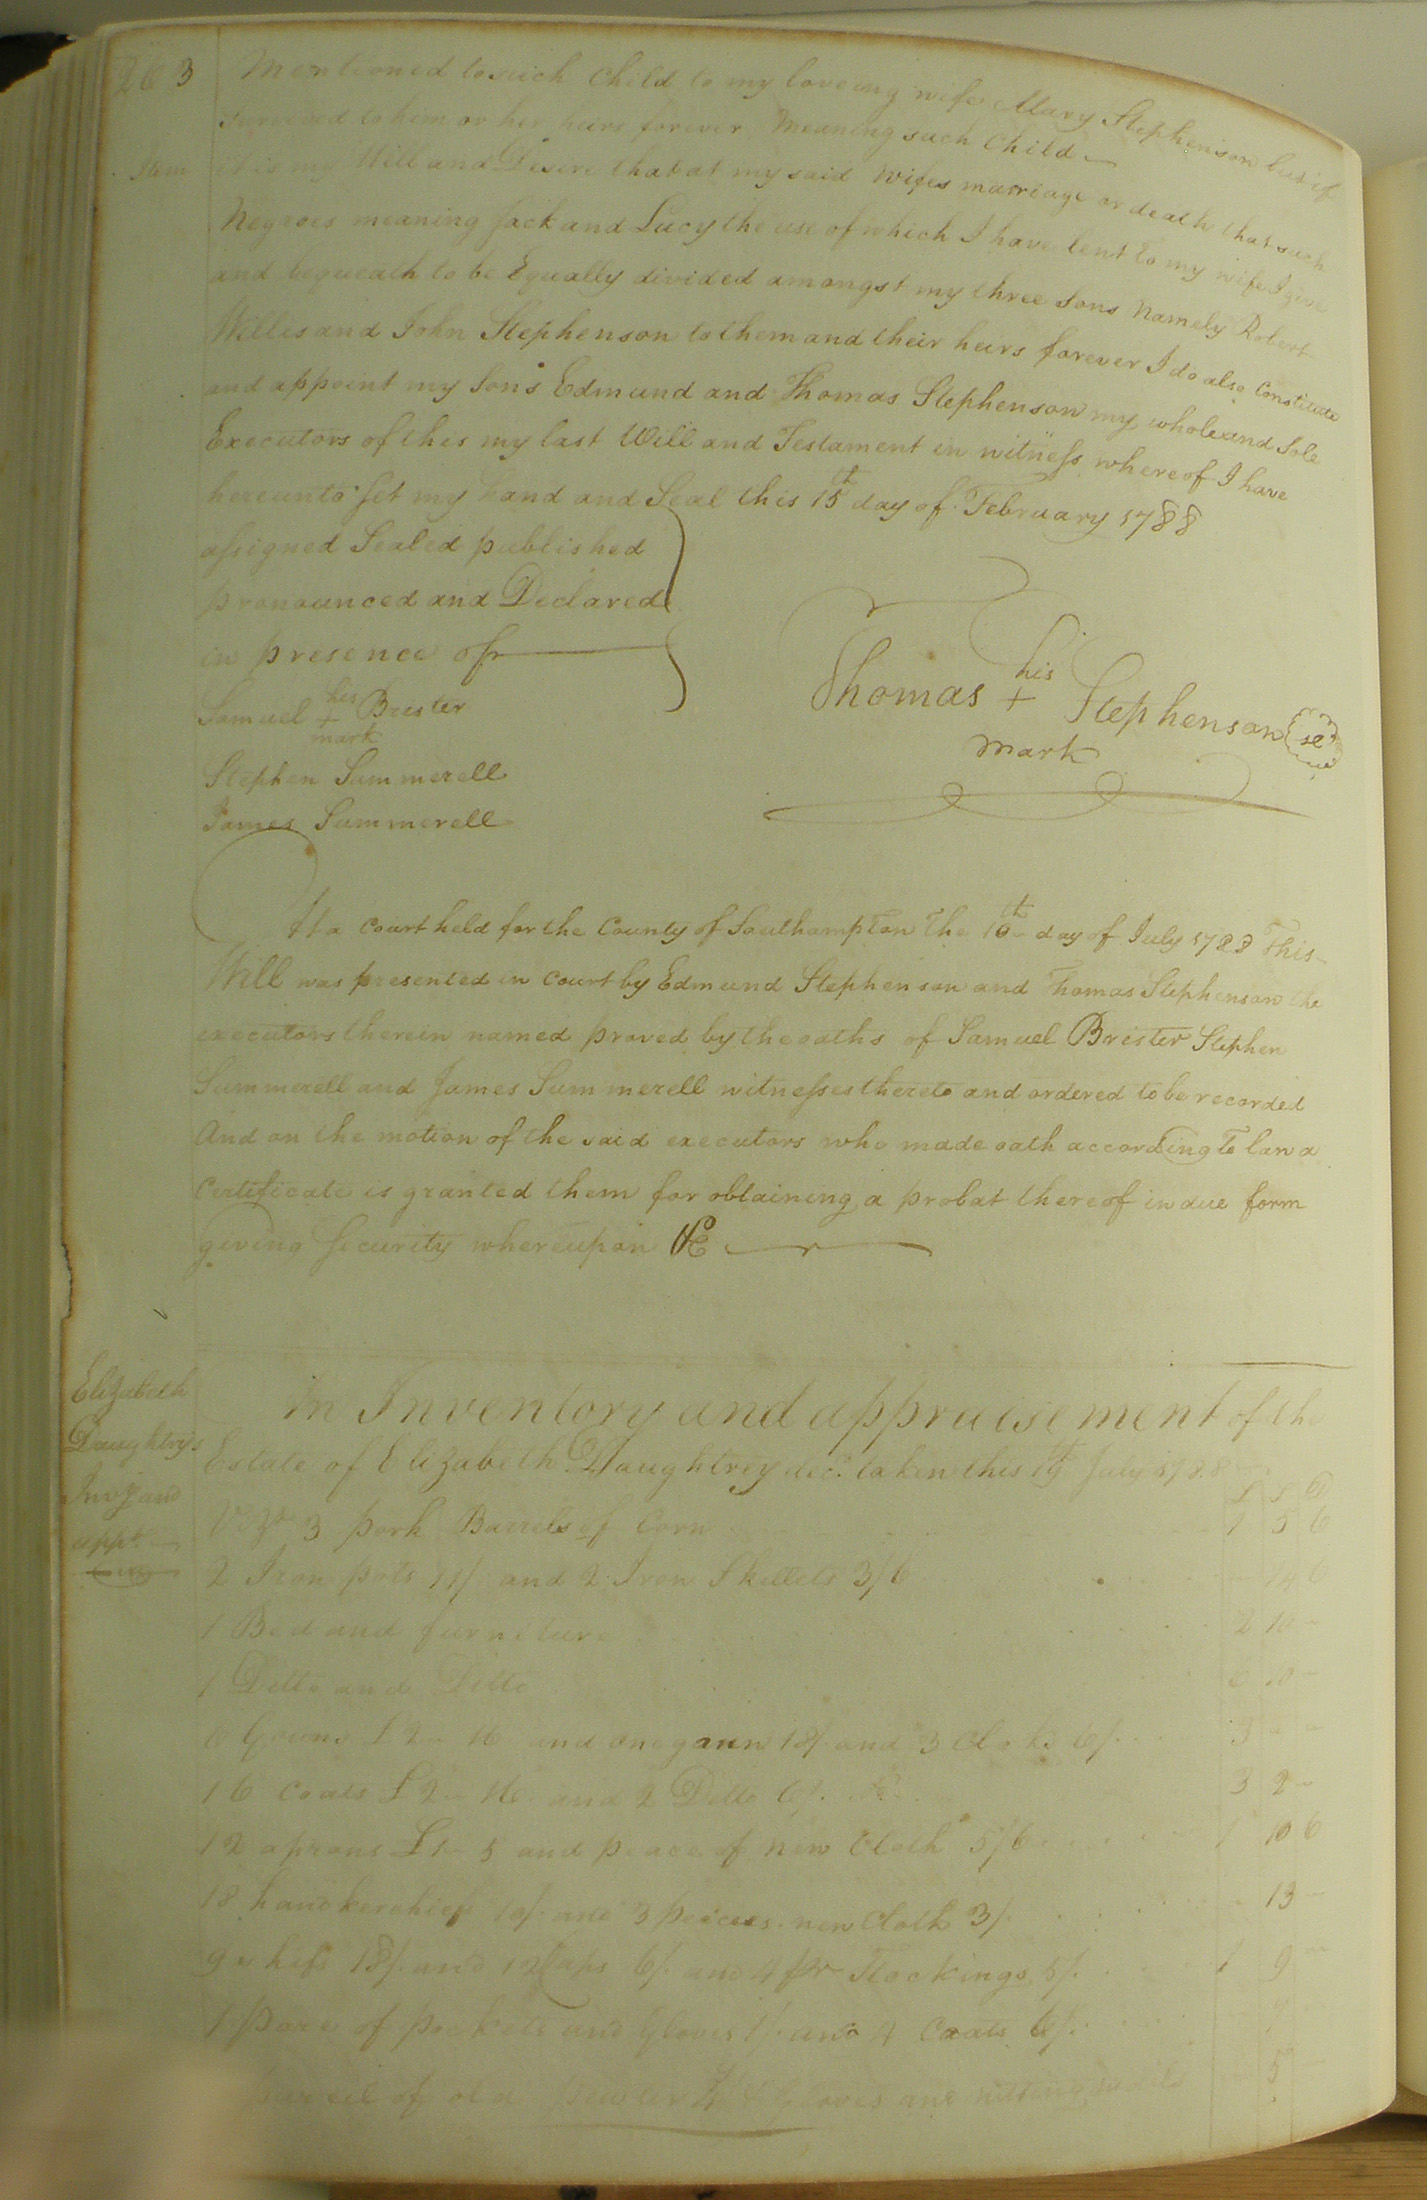 263
Mentioned to such Child to my loveing wife Mary Stephenson but if
survived to hem or her heirs forever Meaning such Child
Item it is my Will and Desire that at my said Wifes marriage or death that such
Negroes meaning Jack and Lucy the use of which I have lent to my wife I give
and bequeath to be Equally divided amongst my three Sons Namely Robert
Willis and John Stephenson to them and their heirs forever I do also Constitute
and appoint my Sons Edmund and Thomas Stephenson my whole and Sole
Executors of this my last Will and Testament in witness whereof I have
hereunto Set my hand and Seal this 15th day of February 1788
assigned Sealed published
pronounced and Declared
in presence of
Thomas his + mark Stephenson
Samuel his + mark Brister
Stephen Summerell
James Summerell
At a Court held for the County of Southampton the 10th day of July 1788 This
Will was presented in Court by Edmund Stephenson and Thomas Stephenson the
executors therein named proved by the oaths of Samuel Brister Stephen
Summerell and James Summerell witnesses thereto and ordered to be recorded
And on the motion of the said executors who made oath according to law a
Certificate is granted them for obtaining a probat thereof in due form
giving Security whereupon &c
Elizabeth
Daughtrys
Invy and
appt
An Inventory and appraisement of the
Estate of Elizabeth Daughtrey decd. taken this July 1788
£ S D
3 pork Barrels of Corn 1 5 6
2 Iron pots 11/ and 2 Iron Skillets 3/6 14 6
1 Bed and furniture 2 10
1 Ditto and Ditto 6 10
6 Gowns £2 - 16 and one gaun 18/. and 3 6/. 3
16 Coats £2 - 16 and 2 Ditto 6/. 3 2
12 aprons £1 - 5 and peace of new Cloth 5/6 1 10 6
18 handkerchief 10/. and 3 peicies new Cloth 3/. 13
9 shifs 18/. and 12 Caps 6/. and 4 pr Stockings 5/. 1 9
1 pare of pockets and Gloves 1/. and 4 Coats 6/.
of old pewter Gloves and 5